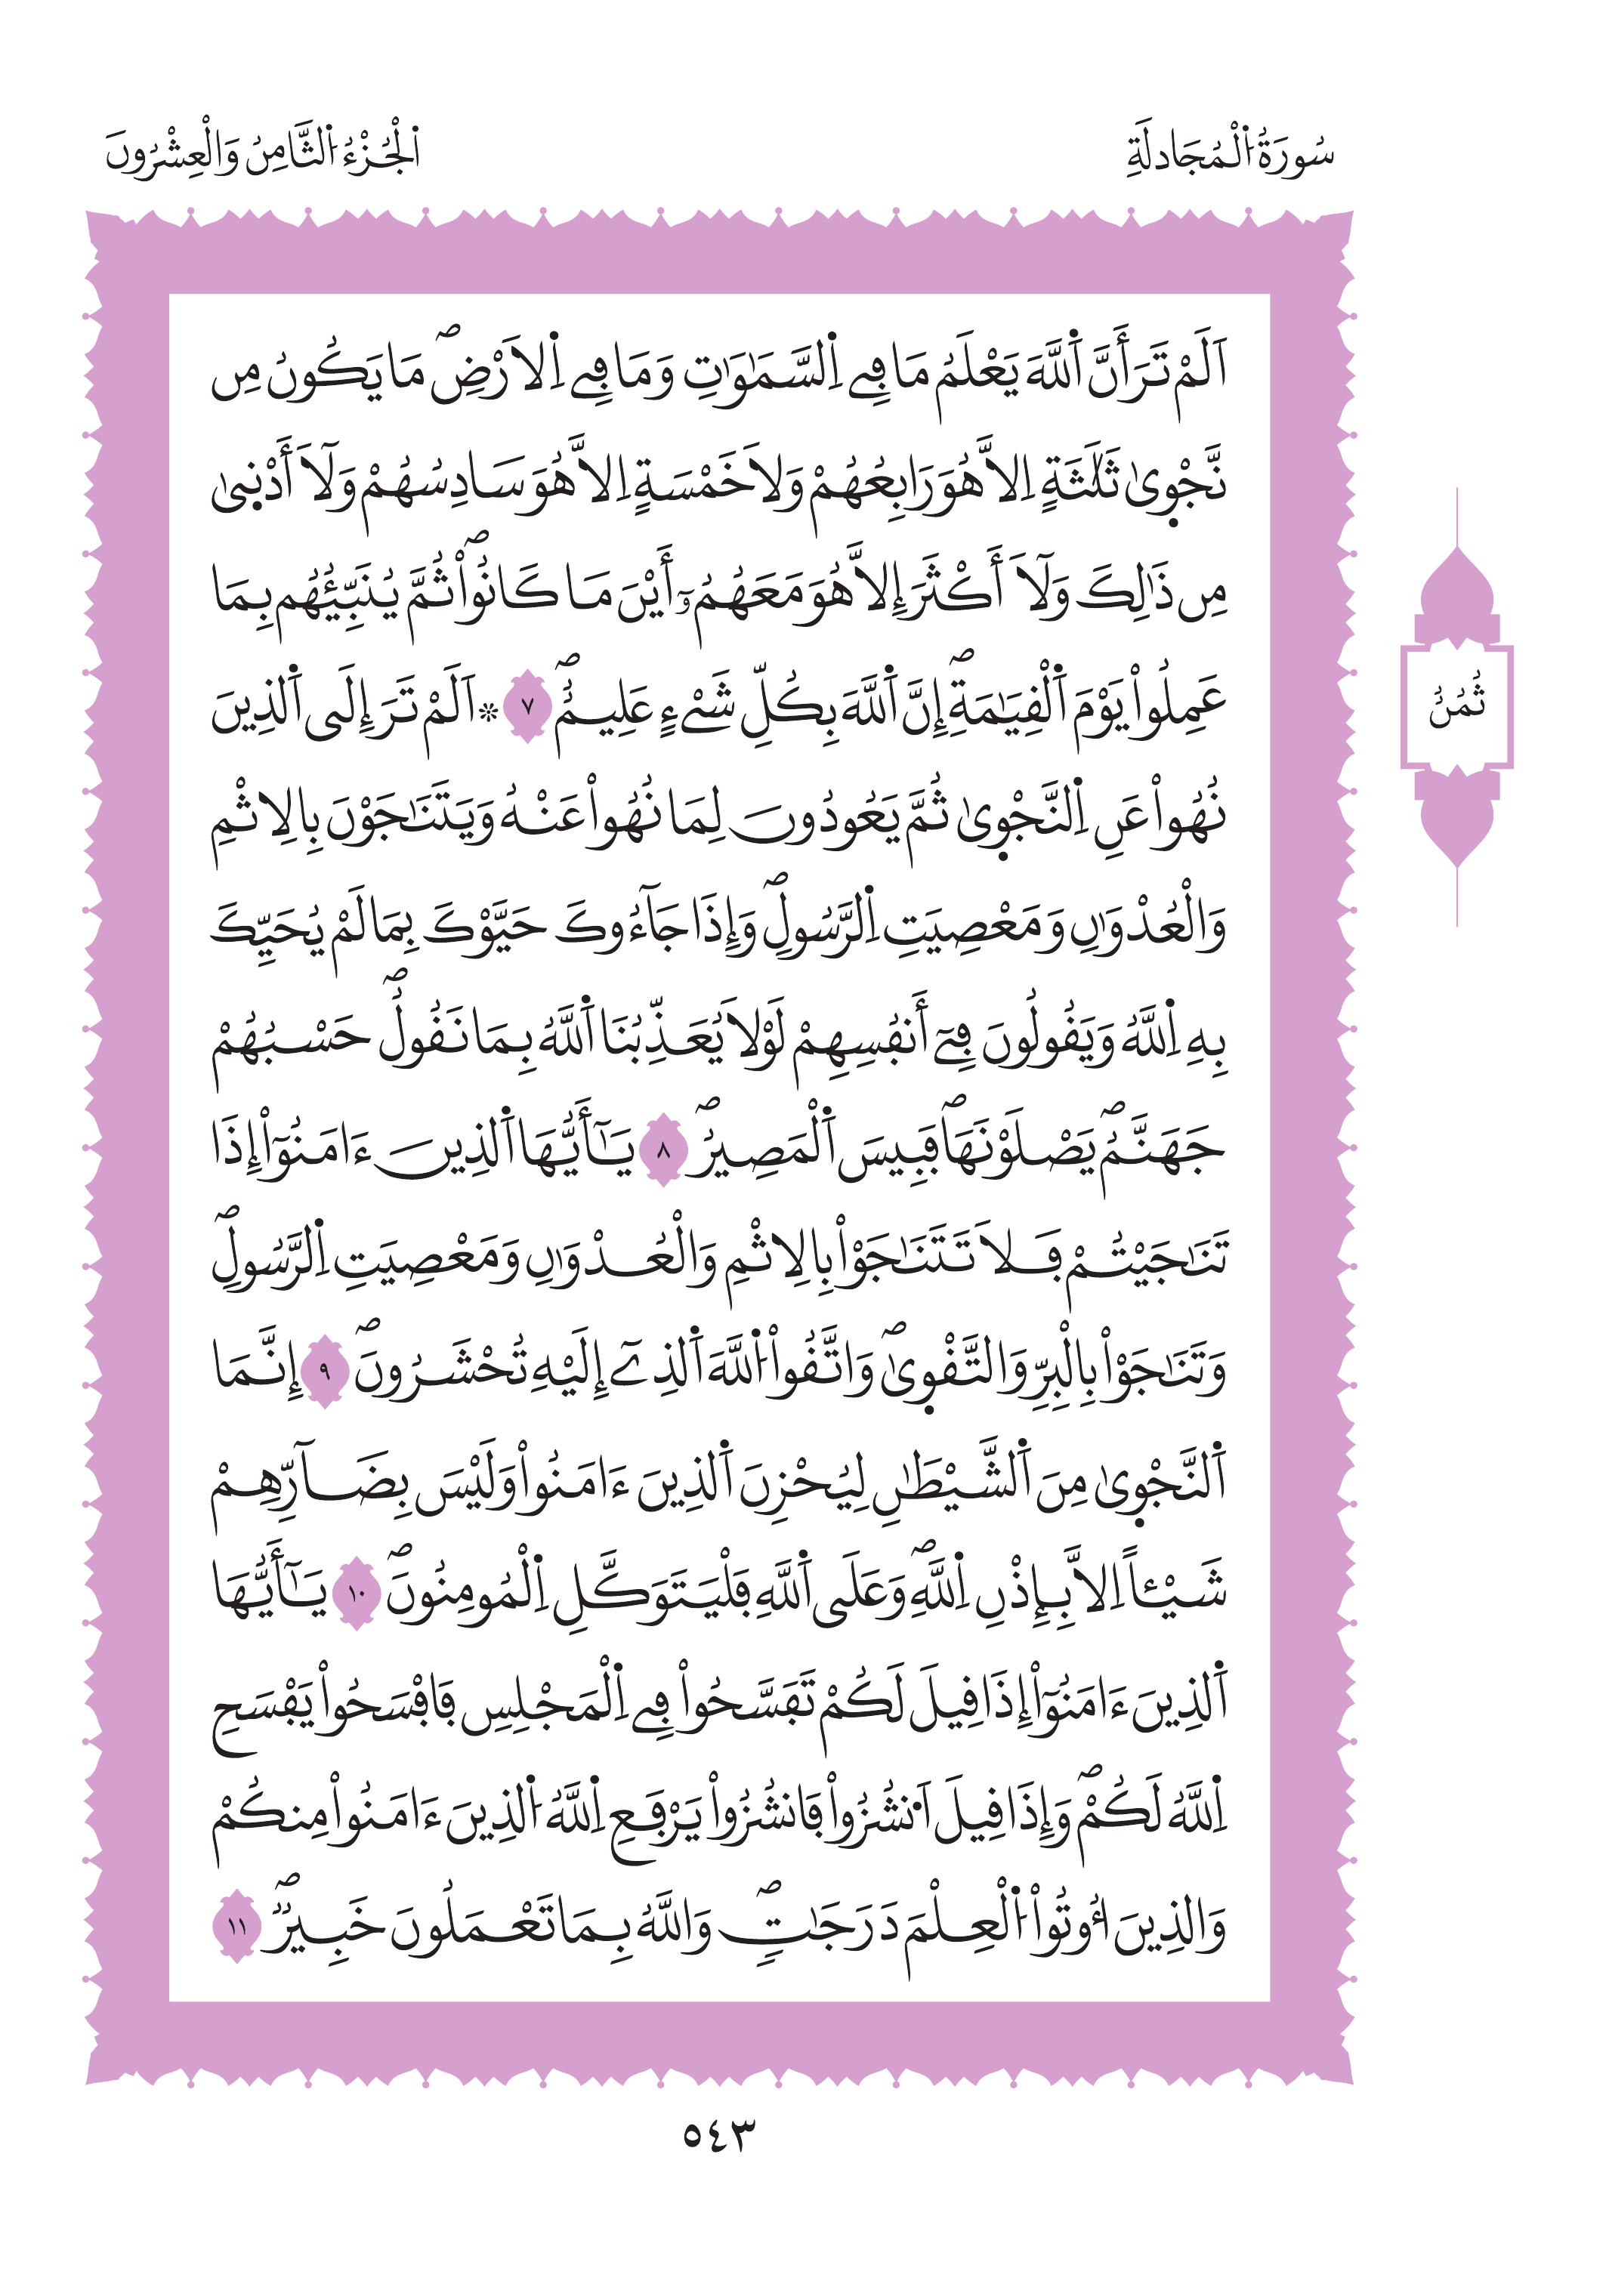 سُورَةُ اُ۬لْمُجَادلَةِ
اَ۬لْجُزْءُ اُ۬لثَّامِنُ وَالْعِشْرُونَ
اَلَمْ تَرَ أَنَّ اَ۬للَّهَ يَعْلَمُ مَا فِے اِ۬لسَّمَٰوَٰتِ وَمَا فِے اِ۬لَارْضِۖ مَا يَكُونُ مِن
نَّجْو۪يٰ ثَلَٰثَةٍ اِلَّا هُوَ رَابِعُهُمْ وَلَا خَمْسَةٍ اِلَّا هُوَ سَادِسُهُمْ وَلَآ أَدْن۪يٰ
مِن ذَٰلِكَ وَلَآ أَكْثَرَ إِلَّا هُوَ مَعَهُمُۥٓ أَيْنَ مَا كَانُواْۖ ثُمَّ يُنَبِّئُهُم بِمَا
عَمِلُواْ يَوْمَ اَ۬لْقِيَٰمَةِۖ إِنَّ اَ۬للَّهَ بِكُلِّ شَےْءٍ عَلِيمٌۖ ٧ ۞اَلَمْ تَرَ إِلَي اَ۬لذِينَ
نُهُواْ عَنِ اِ۬لنَّجْو۪يٰ ثُمَّ يَعُودُونَ لِمَا نُهُواْ عَنْهُ وَيَتَنَٰجَوْنَ بِالِاثْمِ
وَالْعُدْوَٰنِ وَمَعْصِيَتِ اِ۬لرَّسُولِۖ وَإِذَا جَآءُوكَ حَيَّوْكَ بِمَا لَمْ يُحَيِّكَ
بِهِ اِ۬للَّهُ وَيَقُولُونَ فِےٓ أَنفُسِهِمْ لَوْلَا يُعَذِّبُنَا اَ۬للَّهُ بِمَا نَقُولُۖ حَسْبُهُمْ
جَهَنَّمُۖ يَصْلَوْنَهَاۖ فَبِيسَ اَ۬لْمَصِيرُۖ ٨ يَٰٓأَيُّهَا اَ۬لذِينَ ءَامَنُوٓاْ إِذَا
تَنَٰجَيْتُمْ فَلَا تَتَنَٰجَوْاْ بِالِاثْمِ وَالْعُدْوَٰنِ وَمَعْصِيَتِ اِ۬لرَّسُولِۖ
وَتَنَٰجَوْاْ بِالْبِرِّ وَالتَّقْو۪يٰۖ وَاتَّقُواْ اُ۬للَّهَ اَ۬لذِےٓ إِلَيْهِ تُحْشَرُونَۖ ٩ إِنَّمَا
اَ۬لنَّجْو۪يٰ مِنَ اَ۬لشَّيْطَٰنِ لِيُحْزِنَ اَ۬لذِينَ ءَامَنُواْ وَلَيْسَ بِضَآرِّهِمْ
شَيْـٔاً اِلَّا بِإِذْنِ اِ۬للَّهِۖ وَعَلَي اَ۬للَّهِ فَلْيَتَوَكَّلِ اِ۬لْمُومِنُونَۖ ١٠ يَٰٓأَيُّهَا
اَ۬لذِينَ ءَامَنُوٓاْ إِذَا قِيلَ لَكُمْ تَفَسَّحُواْ فِے اِ۬لْمَجْلِسِ فَافْسَحُواْ يَفْسَحِ
اِ۬للَّهُ لَكُمْۖ وَإِذَا قِيلَ اَ۟نشُزُواْ فَانشُزُواْ يَرْفَعِ اِ۬للَّهُ اُ۬لذِينَ ءَامَنُواْ مِنكُمْ
وَالذِينَ أُوتُواْ اُ۬لْعِلْمَ دَرَجَٰتٖۖ وَاللَّهُ بِمَا تَعْمَلُونَ خَبِيرٞۖ ١١
ثُمُنُ
٥٤٣